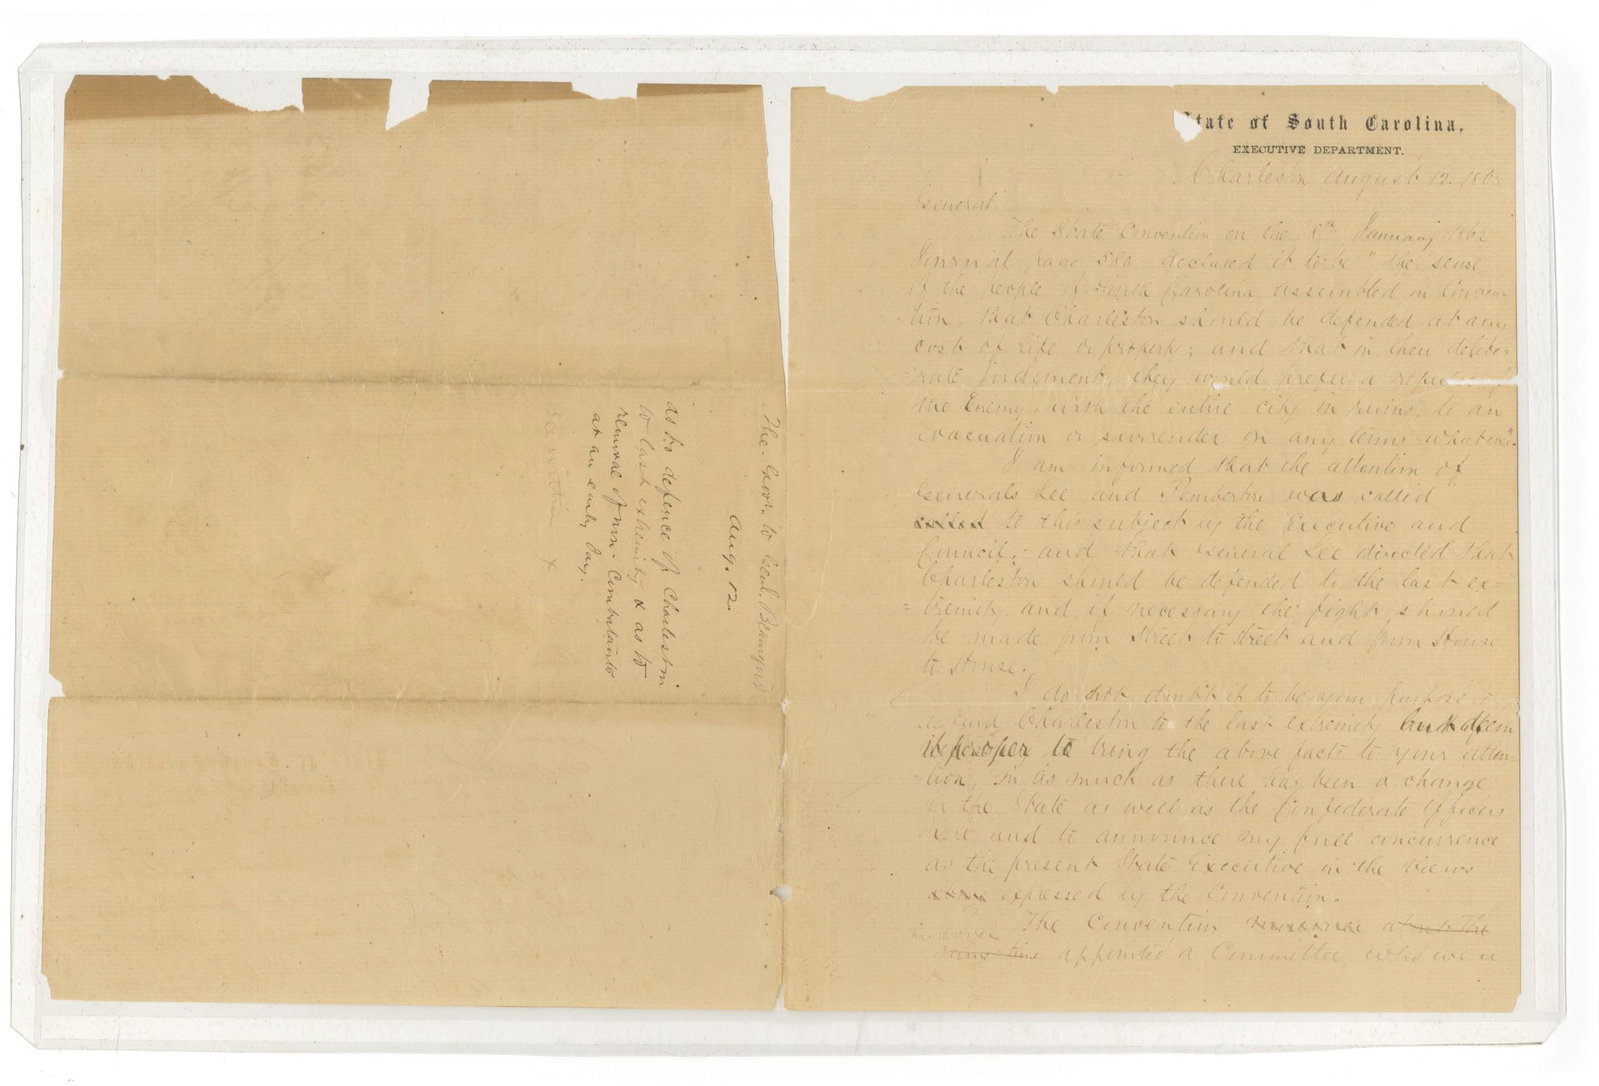 The Gov. to Genl. Beauregard
Aug. 12.
as to defence of Charleston
to last extremity & as to
removal of non-Combatants
at an early day.
See within x
State of South Carolina,
EXECUTIVE DEPARTMENT.
Charleston August 12. 186
General.
The State Convention on the 8th January 1862
Journal page 580 declared it to be "the sense
of the people of South Carolina assembled in Conven-
tion, that Charleston should be defended at any
cost of life or property; and that in their delibe-
rate judgement, they would prefer a repulse of
the Enemy, with the entire city in ruins, to an
evacuation or surrender on any terms whatever".
I am informed that the attention of
Generals Lee and Pemberton was called
called to this subject by the Executive and
Council; and that General Lee directed that
Charleston should be defended to the last ex-
tremity and if necessary the fight should
be made from Street to Street and from House
to House.
I do not doubt it to be your purpose to
defend Charleston to the last extremity but deem
it proper to bring the above facts to your atten-
tion, in as much as there has been a change
in the State as well as the Confederate Officers
here and to announce my full concurrence
as the present State Executive in the views
expressed by the Convention.
The Convention at the
moreover
same time appointed a Committee, who were